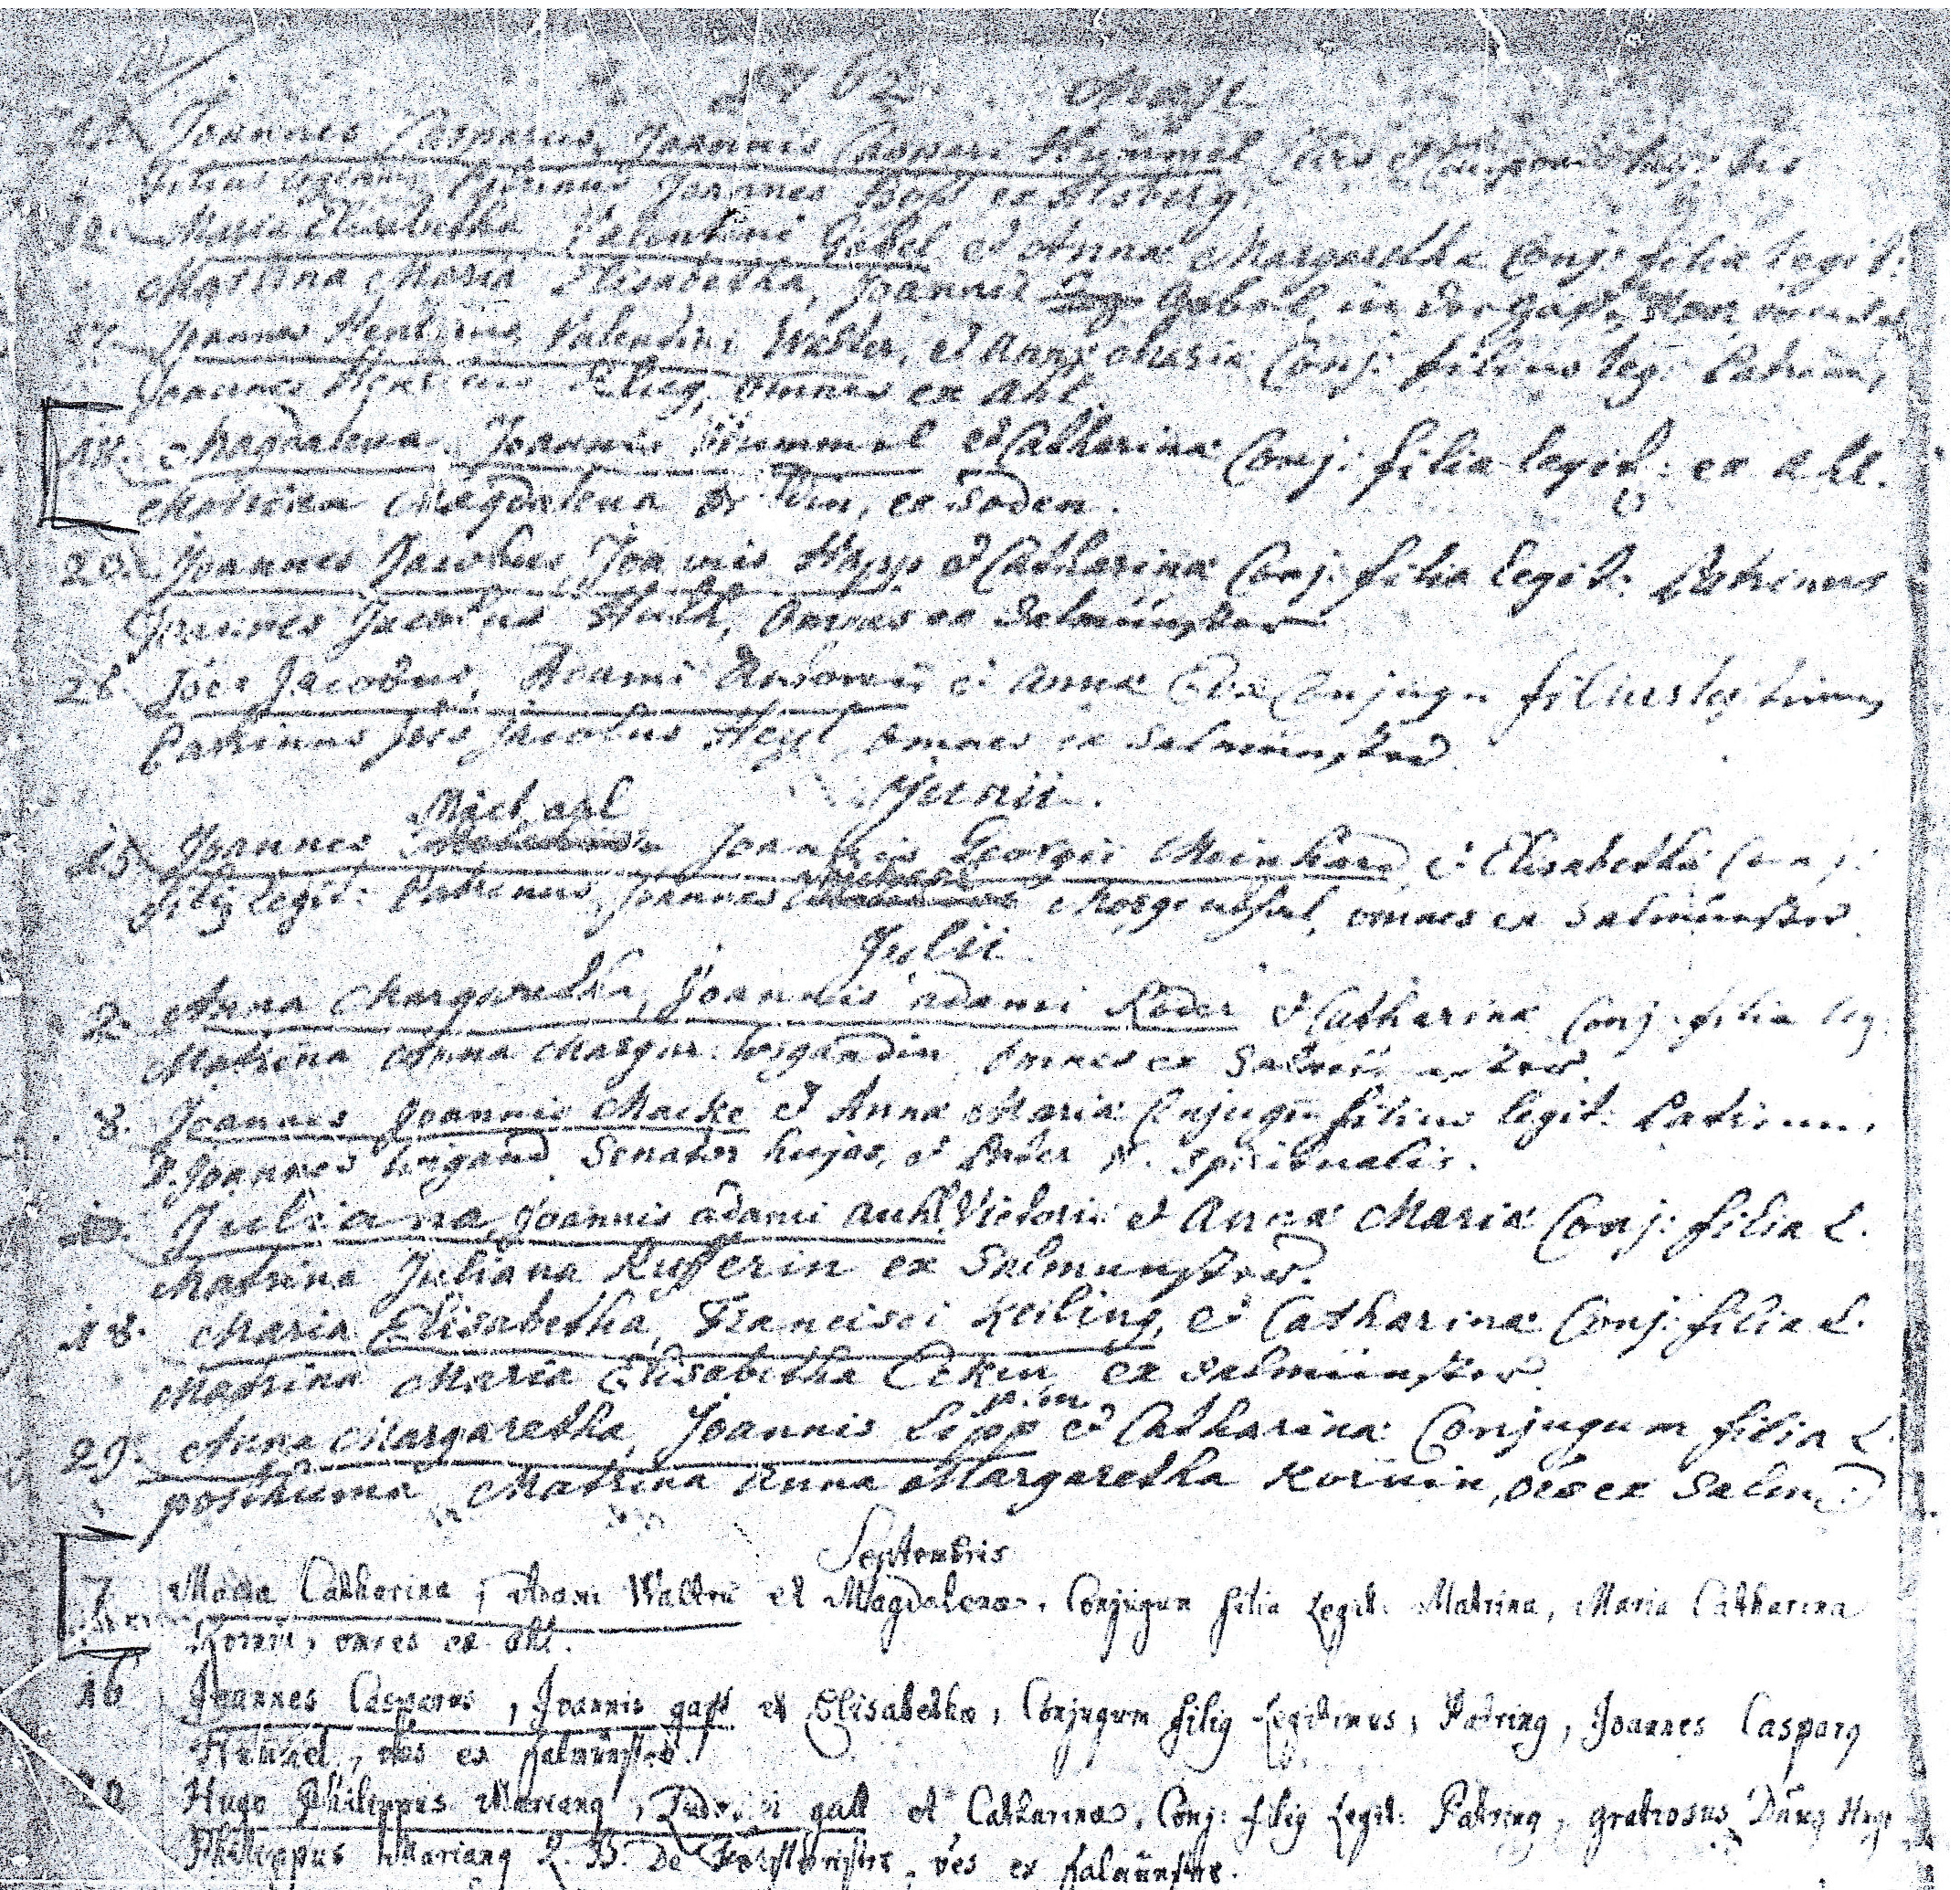 1762. Maji.
Joannes Casparus, Joannis Caspari Hummel
filius legitim. Patrinus Joannes ex Alsberg.
12. Maria Elisabetha Valentini Göbel et Annæ Margarethæ Conj: filia legit:
Matrina Maria Elisabetha, Joannis Göbel in der
Joannes Henricus Valentini Walter, et Annæ Mariæ Conj: filius leg: Patrinus
Joannes Henricus omnes ex Ahl.
18. Magdalena Joannis Hummel et Catharinæ Conj: filia legit: ex Ahl.
Matrina Magdalena ex Soden.
20. Joannes Jacobus Joannis Happ et Catharinæ Conj: filia legit: Patrinus
Joannes Jacobus Huth, omnes ex Salmünster
28. Jões Jacobus, Adami Antonii et Annæ Evæ Conjugum filius legitimus
Patrinus Jões Jacobus Heyl omnes ex Salmünster.
Junii.
Michael
15. Joannes Joannis Georgii Meinhard, et Elisabethæ Conj:
filig legit: Patrinus Joannes Michael Morgenthal, omnes ex Salmünster.
Julii
2. Anna Margaretha, Joannis Adami Röder et Catharinæ Conj: filia leg:
Matrina Anna Margar: Wigandin omnes ex Salmünster.
8. Joannes Joannis Macke et Annæ Mariæ Conjugum filius legit: Patrinus
D. Joannes Wigand Senator hujas, et Pater spiritualis.
10. Juliana, Joannis Adami Auth, Victoris et Annæ Mariæ Conj: filia L.
Matrina Juliana Rufferin ex Salmunster.
18. Maria Elisabetha, Francisci Keiling, et Catharinæ Conj: filia L.
Matrina Maria Elisabetha ex Salmünster.
p. m.
29. Anna Margaretha, Joannis Lipp et Catharinæ Conjugum filia L.
posthuma Matrina Anna Margaretha Kornin, oẽs ex Salm.
Septembris
7 Maria Catharina, Adami Waltru et Magdalenæ, Conjugum filia Legit: Matrina, Maria Catharina
Kornin, omnes ex Ahl.
16 Joannes Casparus, Joannis gast et Elisabethæ, Conjugum filig Legitimus, Patring, Joannes Casparg
Henkel, oẽs ex Salmünster.
20 Hugo Philippus Mariang, Ludovici gall et Catharinæ, Conj: filig Legit: Patring, gratiosus Dñng Hugo
Philippus Mariang L. B. De Forstmeister, oẽs ex Salmünster.